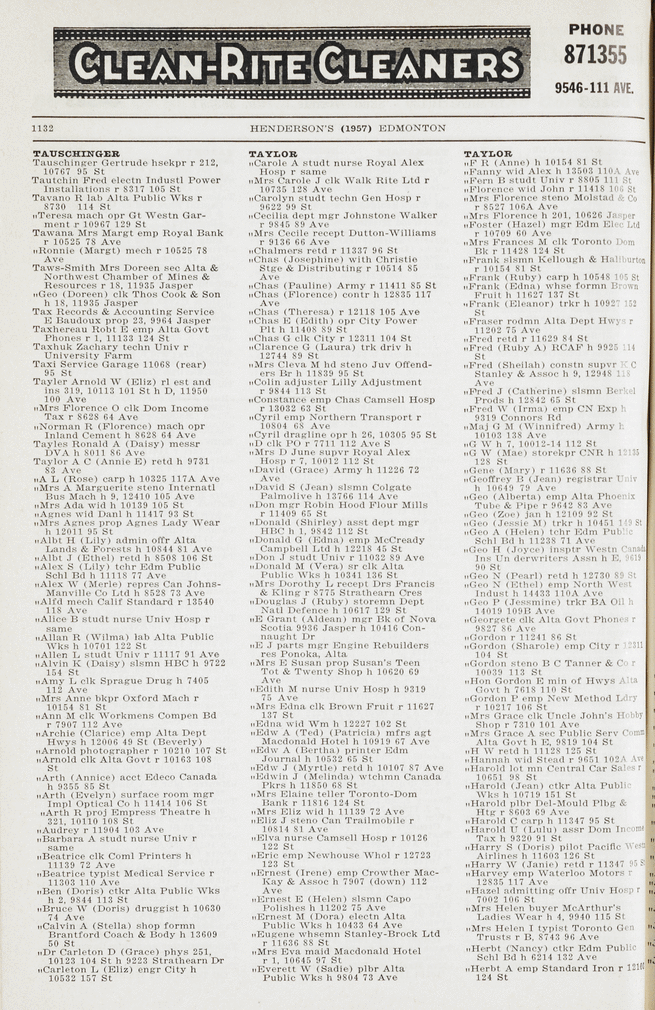 CLEAN-RITE CLEANERS
PHONE
871355
9546-111 AVE.
1132
HENDERSON'S (1957) EDMONTON
TAUSCHINGER
Tauschinger Gertrude hsekpr r 212,
10767 95 St
Tautchin Fred electn Industl Power
Installations r 8317 105 St
Tavano R lab Alta Public Wks r
8730 114 St
„Teresa mach opr Gt Westn Gar-
ment r 10967 129 St
Tawana Mrs Margt emp Royal Bank
r 10525 78 Ave
„Ronnie (Margt) mech r 10525 78
Ave
Taws-Smith Mrs Doreen sec Alta &
Northwest Chamber of Mines &
Resources r 18, 11935 Jasper
„Geo (Doreen) clk Thos Cook & Son
h 18, 11935 Jasper
Tax Records & Accounting Service
E Baudoux prop 23, 9964 Jasper
Taxhereau Robt E emp Alta Govt
Phones r 1, 11133 124 St
Taxhuk Zachary techn Univ r
University Farm
Taxi Service Garage 11068 (rear)
95 St
Tayler Arnold W (Eliz) rl est and
ins 319, 10113 101 St h D, 11950
100 Ave
„Mrs Florence O clk Dom Income
Tax r 8628 64 Ave
„Norman R (Florence) mach opr
Inland Cement h 8628 64 Ave
Tayles Ronald A (Daisy) messr
DVA h 8011 86 Ave
Taylor A C (Annie E) retd h 9731
83 Ave
„A L (Rose) carp h 10325 117A Ave
„Mrs A Marguerite steno Internatl
Bus Mach h 9, 12410 105 Ave
„Mrs Ada wid h 10139 105 St
„Agnes wid Danl h 11417 93 St
„Mrs Agnes prop Agnes Lady Wear
h 12011 95 St
„Albt H (Lily) admin offr Alta
Lands & Forests h 10844 81 Ave
„Albt J (Ethel) retd h 8508 106 St
„Alex S (Lily) tchr Edm Public
Schl Bd h 11118 77 Ave
„Alex W (Merle) repres Can Johns-
Manville Co Ltd h 8528 73 Ave
„Alfd mech Calif Standard r 13540
118 Ave
„Alice B studt nurse Univ Hosp r
same
„Allan R (Wilma) lab Alta Public
Wks h 10701 122 St
„Allen L studt Univ r 11117 91 Ave
„Alvin K (Daisy) slsmn HBC h 9722
154 St
„Amy L clk Sprague Drug h 7405
112 Ave
„Mrs Anne bkpr Oxford Mach r
10154 81 St
„Ann M clk Workmens Compen Bd
r 7907 112 Ave
„Archie (Clarice) emp Alta Dept
Hwys h 12006 49 St (Beverly)
„Arnold photographer r 10210 107 St
„Arnold clk Alta Govt r 10163 108
St
„Arth (Annice) acct Edeco Canada
h 9355 85 St
„Arth (Evelyn) surface room mgr
Impl Optical Co h 11414 106 St
„Arth R proj Empress Theatre h
321, 10110 108 St
„Audrey r 11904 103 Ave
„Barbara A studt nurse Univ r
same
„Beatrice clk Coml Printers h
11139 72 Ave
„Beatrice typist Medical Service r
11303 110 Ave
„Ben (Doris) ctkr Alta Public Wks
h 2, 9844 113 St
„Bruce W (Doris) druggist h 10630
74 Ave
„Calvin A (Stella) shop formn
Brantford Coach & Body h 13609
50 St
„Dr Carleton D (Grace) phys 251,
10123 104 St h 9223 Strathearn Dr
„Carleton L (Eliz) engr City h
10532 157 St
TAYLOR
„Carole A studt nurse Royal Alex
Hosp r same
„Mrs Carole J clk Walk Rite Ltd r
10735 128 Ave
„Carolyn studt techn Gen Hosp r
9622 99 St
„Cecilia dept mgr Johnstone Walker
r 9845 89 Ave
„Mrs Cecile recept Dutton-Williams
r 9136 66 Ave
„Chalmers retd r 11337 96 St
„Chas (Josephine) with Christie
Stge & Distributing r 10514 85
Ave
„Chas (Pauline) Army r 11411 85 St
„Chas (Florence) contr h 12835 117
Ave
„Chas (Theresa) r 12118 105 Ave
„Chas E (Edith) opr City Power
Plt h 11408 89 St
„Chas G clk City r 12311 104 St
„Clarence G (Laura) trk driv h
12744 89 St
„Mrs Cleva M hd steno Juv Offend-
ers Br h 11839 95 St
„Colin adjuster Lilly Adjustment
r 9844 113 St
„Constance emp Chas Camsell Hosp
r 13032 63 St
„Cyril emp Northern Transport r
10804 68 Ave
„Cyril dragline opr h 26, 10305 95 St
„D clk PO r 7711 112 Ave S
„Mrs D June supvr Royal Alex
Hosp r 7, 10012 112 St
„David (Grace) Army h 11226 72
Ave
„David S (Jean) slsmn Colgate
Palmolive h 13766 114 Ave
„Don mgr Robin Hood Flour Mills
r 11409 65 St
„Donald (Shirley) asst dept mgr
HBC h 1, 9842 112 St
„Donald G (Edna) emp McCready
Campbell Ltd h 12218 45 St
„Don J studt Univ r 11032 89 Ave
„Donald M (Vena) sr clk Alta
Public Wks h 10341 136 St
„Mrs Dorothy L recept Drs Francis
& Kling r 8775 Strathearn Cres
„Douglas J (Ruby) storemn Dept
Natl Defence h 11617 129 St
„E Grant (Aldean) mgr Bk of Nova
Scotia 9936 Jasper h 10416 Con-
naught Dr
„E J parts mgr Engine Rebuilders
res Ponoka, Alta
„Mrs E Susan prop Susan's Teen
Tot & Twenty Shop h 10620 69
Ave
„Edith M nurse Univ Hosp h 9319
75 Ave
„Mrs Edna clk Brown Fruit r 11627
137 St
„Edna wid Wm h 12227 102 St
„Edw A (Ted) (Patricia) mfrs agt
Macdonald Hotel h 10919 67 Ave
„Edw A (Bertha) printer Edm
Journal h 10532 65 St
„Edw J (Myrtle) retd h 10107 87 Ave
„Edwin J (Melinda) wtchmn Canada
Pkrs h 11850 68 St
„Mrs Elaine teller Toronto-Dom
Bank r 11816 124 St
„Mrs Eliz wid h 11139 72 Ave
„Eliz J steno Can Trailmobile r
10814 81 Ave
„Elva nurse Camsell Hosp r 10126
122 St
„Eric emp Newhouse Whol r 12723
123 St
„Ernest (Irene) emp Crowther Mac-
Kay & Assoc h 7907 (down) 112
Ave
„Ernest E (Helen) slsmn Capo
Polishes h 11202 75 Ave
„Ernest M (Dora) electn Alta
Public Wks h 10433 64 Ave
„Eugene whsemn Stanley-Brock Ltd
r 11636 88 St
„Mrs Eva maid Macdonald Hotel
r 1, 10645 97 St
„Everett W (Sadie) plbr Alta
Public Wks h 9804 73 Ave
TAYLOR
„F R (Anne) h 10154 81 St
„Fanny wid Alex h 13503 110A Ave
„Fern B studt Univ r 8805 111 St
„Florence wid John r 11418 106 St
„Mrs Florence steno Molstad & Co
r 8527 106A Ave
„Mrs Florence h 201, 10626 Jasper
„Foster (Hazel) mgr Edm Elec Ltd
r 10709 60 Ave
„Mrs Frances M clk Toronto Dom
Bk r 11428 124 St
„Frank slsmn Kellough & Haliburton
r 10154 81 St
„Frank (Ruby) carp h 10548 105 St
„Frank (Edna) whse formn Brown
Fruit h 11627 137 St
„Frank (Eleanor) trkr h 10927 152
St
„Fraser rodmn Alta Dept Hwys r
11202 75 Ave
„Fred retd r 11629 84 St
„Fred (Ruby A) RCAF h 9925 114
St
„Fred (Sheilah) constn supvr K C
Stanley & Assoc h 9, 12948 118
Ave
„Fred J (Catherine) slsmn Berkel
Prods h 12842 65 St
„Fred W (Irma) emp CN Exp h
9319 Connors Rd
„Maj G M (Winnifred) Army h
10103 138 Ave
„G W h 7, 10012-14 112 St
„G W (Mae) storekpr CNR h 12135
128 St
„Gene (Mary) r 11636 88 St
„Geoffrey B (Jean) registrar Univ
h 10649 79 Ave
„Geo (Alberta) emp Alta Phoenix
Tube & Pipe r 9642 83 Ave
„Geo (Zoe) jan h 12109 92 St
„Geo (Jessie M) trkr h 10451 149 St
„Geo A (Helen) tchr Edm Public
Schl Bd h 11238 71 Ave
„Geo H (Joyce) insptr Westn Canada
Ins Un derwriters Assn h E, 9619
90 St
„Geo N (Pearl) retd h 12730 89 St
„Geo N (Ethel) emp North West
Indust h 14433 110A Ave
„Geo P (Jessmine) trkr BA Oil h
14019 109B Ave
„Georgete clk Alta Govt Phones r
9827 86 Ave
„Gordon r 11241 86 St
„Gordon (Sharole) emp City r 12311
104 St
„Gordon steno B C Tanner & Co r
10039 113 St
„Hon Gordon E min of Hwys Alta
Govt h 7618 110 St
„Gordon P emp New Method Ldry
r 10217 106 St
„Mrs Grace clk Uncle John's Hobby
Shop r 7310 101 Ave
„Mrs Grace A sec Public Serv Comn
Alta Govt h E, 9819 104 St
„H W retd h 11128 125 St
„Hannah wid Stead r 9651 102A Ave
„Harold lot mn Central Car Sales r
10651 98 St
„Harold (Jean) ctkr Alta Public
Wks h 10719 151 St
„Harold plbr Del-Mould Plbg &
Htg r 8603 69 Ave
„Harold C carp h 11347 95 St
„Harold U (Lulu) assr Dom Income
Tax h 9320 91 St
„Harry S (Doris) pilot Pacific Westn
Airlines h 11603 126 St
„Harry W (Janie) retd r 11347 95 St
„Harvey emp Waterloo Motors r
12835 117 Ave
„Hazel admitting offr Univ Hosp r
7002 106 St
„Mrs Helen buyer McArthur's
Ladies Wear h 4, 9940 115 St
„Mrs Helen I typist Toronto Gen
Trusts r B, 8743 96 Ave
„Herbt (Nancy) ctkr Edm Public
Schl Bd h 6214 132 Ave
„Herbt A emp Standard Iron r
124 St